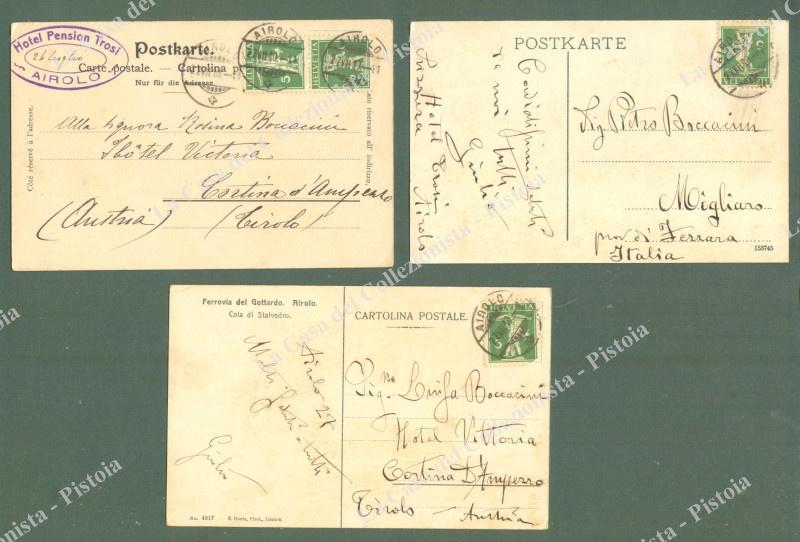 Hotel Pension Trosi
26 luglio
AIROLO
Postkarte.
Carte postale. – Cartolina p
Nur für die Adresse.
AIROLO
HELVETIA
5
AIROLO
Côté réservé à l'adresse.
ato riservato all' indirizzo.
Alla signora Rosina Boccacini
Hôtel Victoria
Cortina d'Ampezzo
(Austria) (Tirolo)
POSTKARTE
AIROLO
5
Giulio
Svizzera Hotel Trosi
Airolo
Sig. Pietro Boccacini
Migliaro
prov. di Ferrara
Italia
153745
Ferrovia del Gottardo. Airolo.
Cola di Stalvedro.
CARTOLINA POSTALE.
AIROLO
HELVETIA
5
Airolo 27
Molti saluti a tutti
Giulio
Sig.na Luisa Boccacini
Hotel Vittoria
Cortina D'Ampezzo
Tirolo - Austria
No. 4217
La Casa del Collezionista - Pistoia